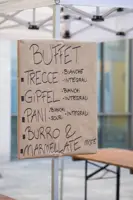 BUFFET
TRECCE -BIANCHE
-INTEGRALI
GIPFEL -BIANCHI
-INTEGRALI
PANI -BIANCHI
-SCURI -INTEGRALI
BURRO &
MARMELLATE MISTE